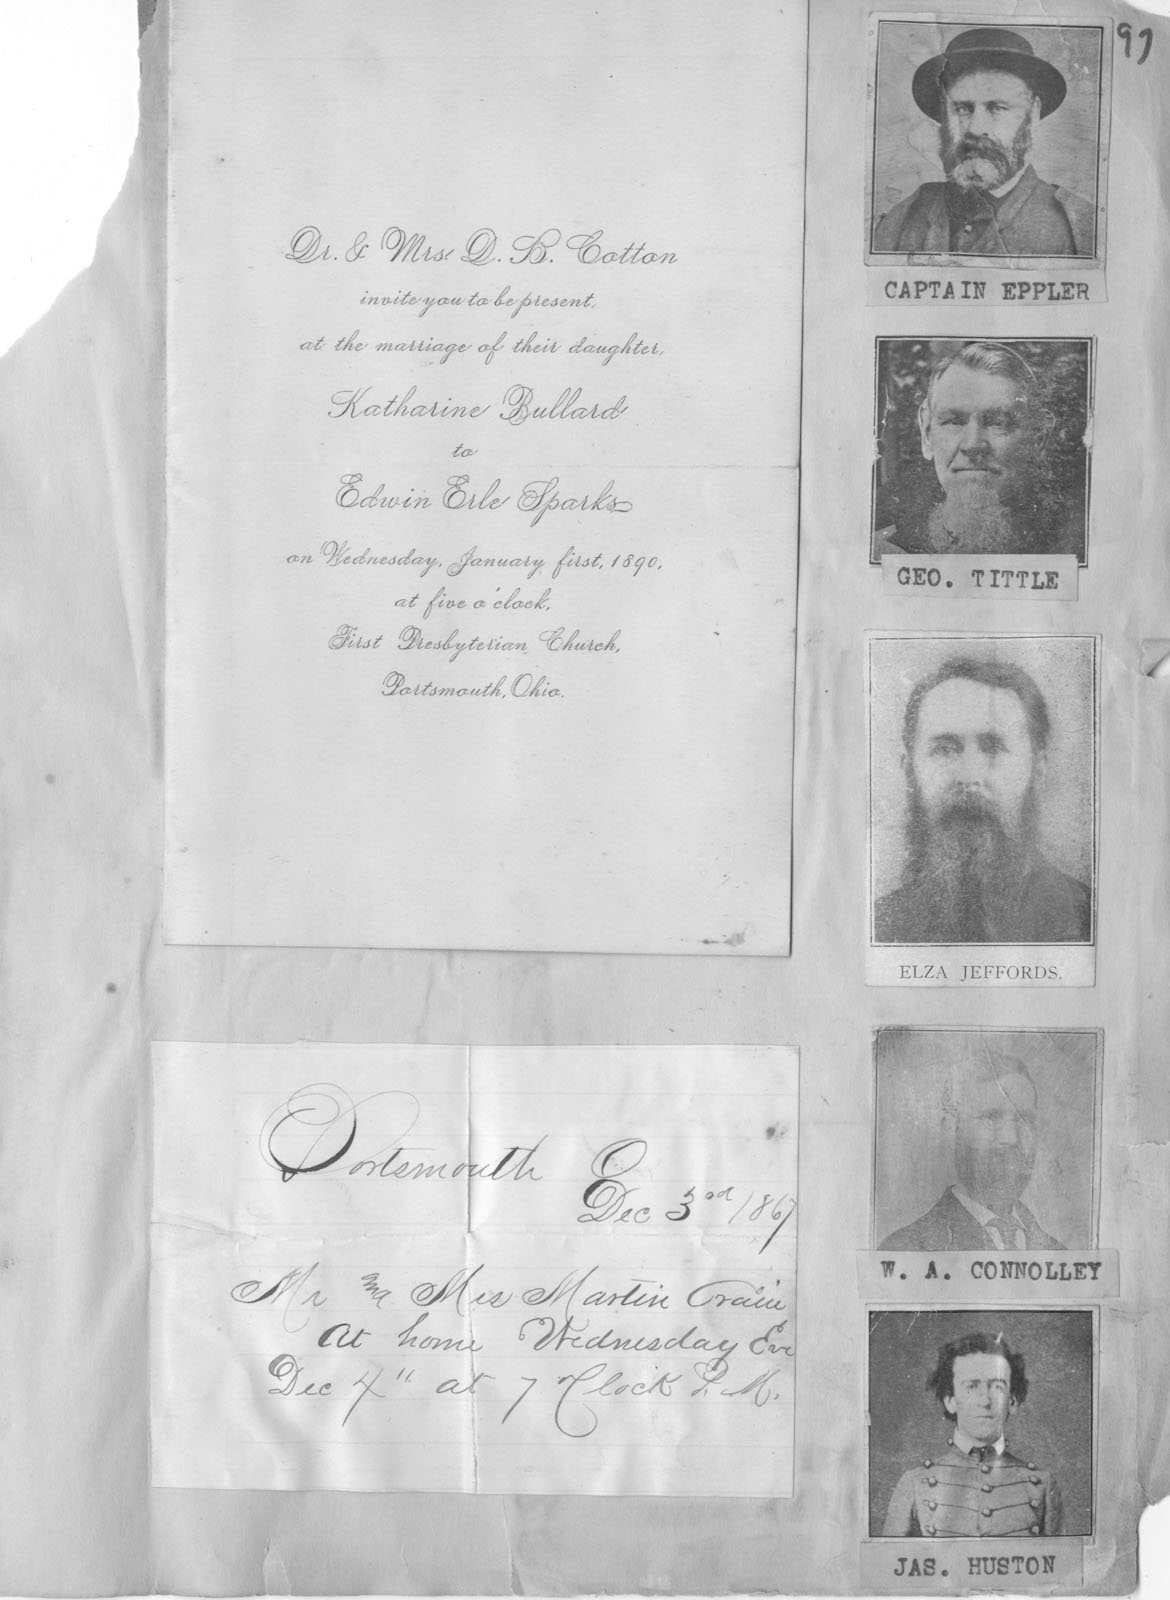 97
Dr. & Mrs. D. B. Cotton
invite you to be present,
at the marriage of their daughter,
Katharine Bullard
to
Edwin Erle Sparks
on Wednesday, January first, 1890,
at five o'clock,
First Presbyterian Church,
Portsmouth, Ohio.
Portsmouth O
Dec 3rd 1867
Mr and Mrs Martin Crain
At home Wednesday Eve
Dec 4" at 7 Clock P.M.
CAPTAIN EPPLER
GEO. TITTLE
ELZA JEFFORDS.
W. A. CONNOLLEY
JAS. HUSTON